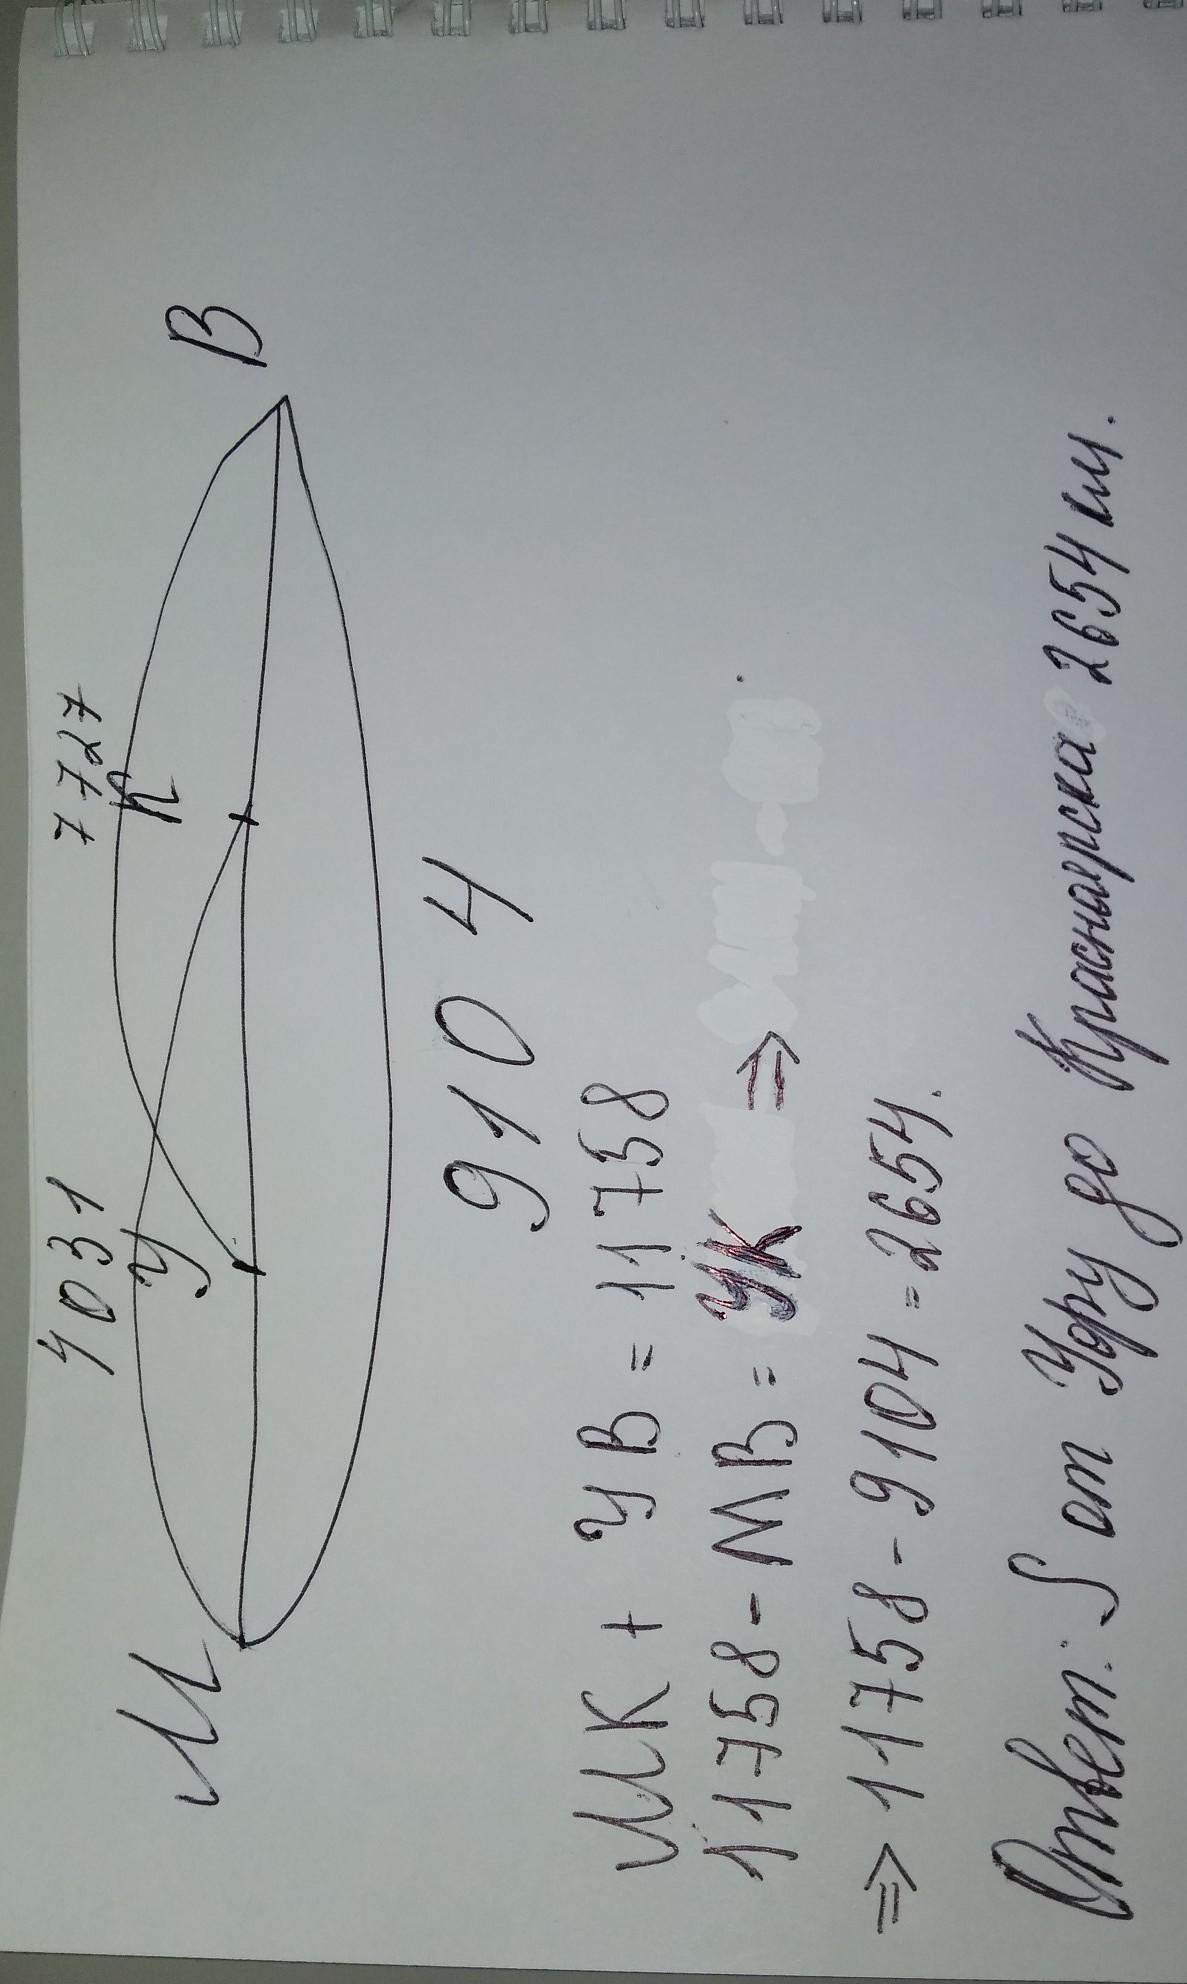 4031 7727
М У К В
9104
МК + УВ = 11758
11758 - МВ = УК ⇒
⇒ 11758 - 9104 = 2654.
Ответ: S от Уфы до Красноярска 2654 км.